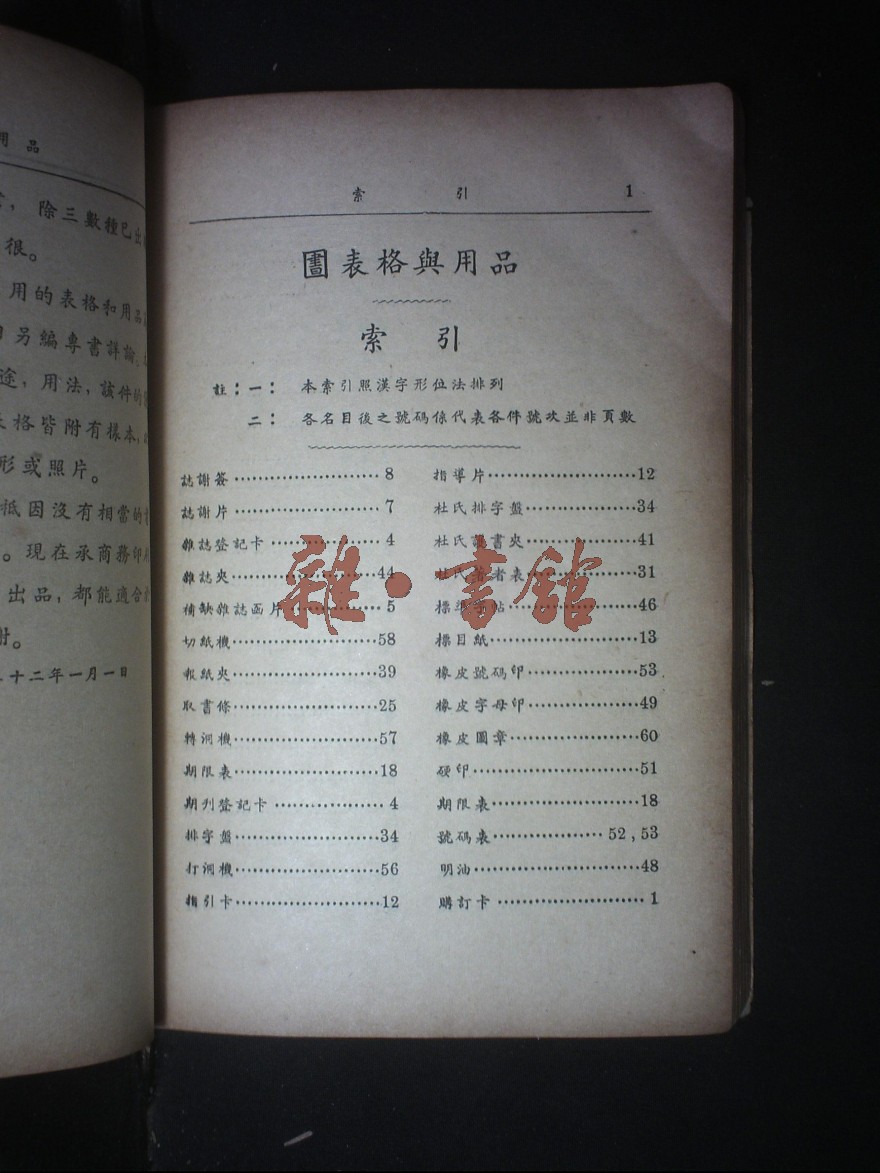 用品
，除三數種已出
很。
用的表格和用品
另編專書詳論
途，用法，該件的
格皆附有樣本，
形或照片。
祗因沒有相當的
。現在承商務印
出品，都能適合
十二年一月一日
索引 1
圕表格與用品
索引
註：一： 本索引照漢字形位法排列
二： 各名目後之號碼係代表各件號次並非頁數
誌謝簽························8
誌謝片························7
雜誌登記卡··················4
雜誌夾························44
補缺雜誌函片···············5
切紙機························58
報紙夾························39
取書條························25
轉洞機························57
期限表························18
期刊登記卡··················4
排字盤························34
打洞機························56
指引卡························12
指導片························12
杜氏排字盤··················34
杜氏書夾··················41
杜氏著者表··················31
標準字帖·····················46
標目紙························13
橡皮號碼印··················53
橡皮字母印··················49
橡皮圖章·····················60
硬印···························51
期限表························18
號碼表·················· 52，53
明油···························48
購訂卡························1
雜·書館